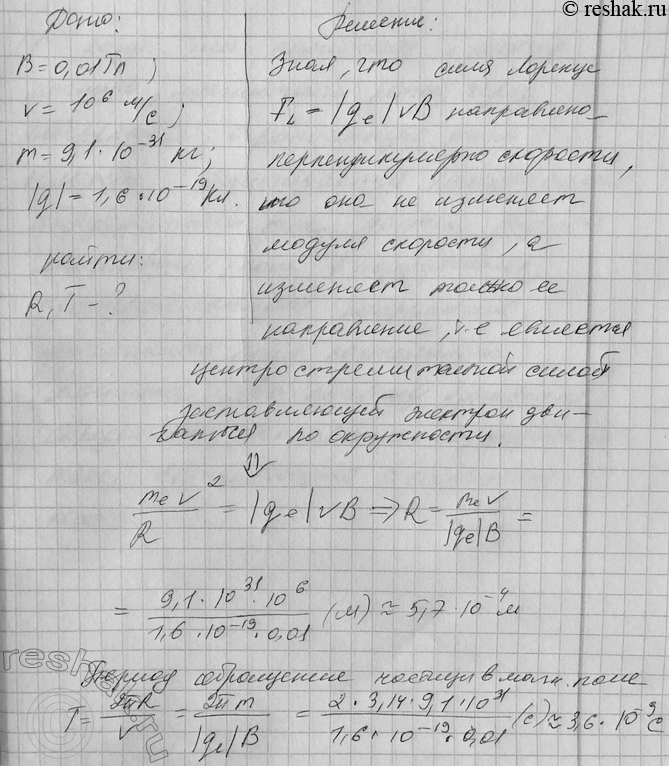 © reshak.ru
Дано:
B = 0,01 Тл;
v = 10⁶ м/с;
m = 9,1 · 10⁻³¹ кг;
|q| = 1,6 · 10⁻¹⁹ Кл.
найти:
R, T - ?
Решение:
Зная, что сила Лоренца
Fл = |qe| v B направлена
перпендикулярно скорости,
что она не изменяет
модуля скорости, а
изменяет только ее
направление, т.е является
центростремительной силой
заставляющей электрон дви-
гаться по окружности.
⇓
me v²/R = |qe| v B ⇒ R = me v/|qe| B =
= 9,1 · 10³¹ · 10⁶/1,6 · 10⁻¹⁹ · 0,01 (м) ≈ 5,7 · 10⁻⁴ м
Период обращения частицы в магн. поле
T = 2πR/v = 2πm/|qe| B = 2 · 3,14 · 9,1 · 10³¹/1,6 · 10⁻¹⁹ · 0,01 (с) ≈ 3,6 · 10⁻⁹ с
reshak.ru